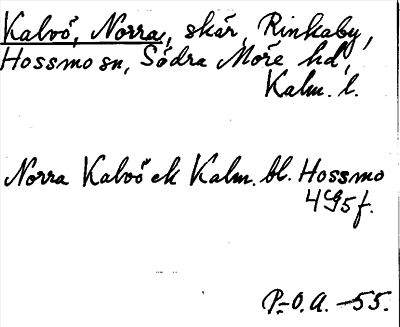 Kalvö, Norra, skär, Rinkaby,
Hossmo sn, Södra Möre hd,
Kalm. l.
Norra Kalvö ek Kalm. bl. Hossmo
4 g5f.
P.-O.A. -55.